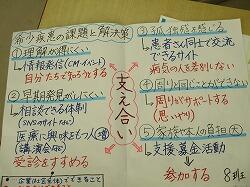 希少疾患の課題と解決策
①理解が得にくい
・情報発信(CM・イベント)
自分たちで知ろうとする
②早期発見がしにくい
・相談できる体制
SNSのサイトなど
医療に興味をもつ人増
(講演会など)
受診をすすめる
支え合い
③孤独感を感じる
・患者さん同士で交流
できるサイト
病気の人を差別しない
④周りと同じことができない
周りがサポート
する・思いやる
⑤家族や本人の負担大
・支援、基金活動
参加する
8班